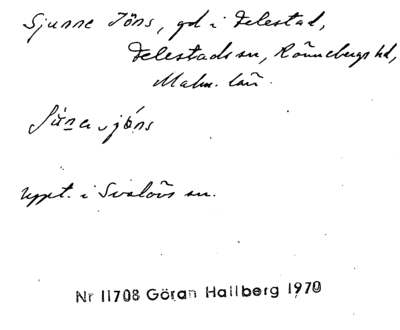 Sjunne Jöns, gd i Felestad,
Felestads sn, Rönnebergs hd,
Malm. län.
jöns
uppt. i Svalövs sn.
Nr 11708 Göran Hallberg 1970